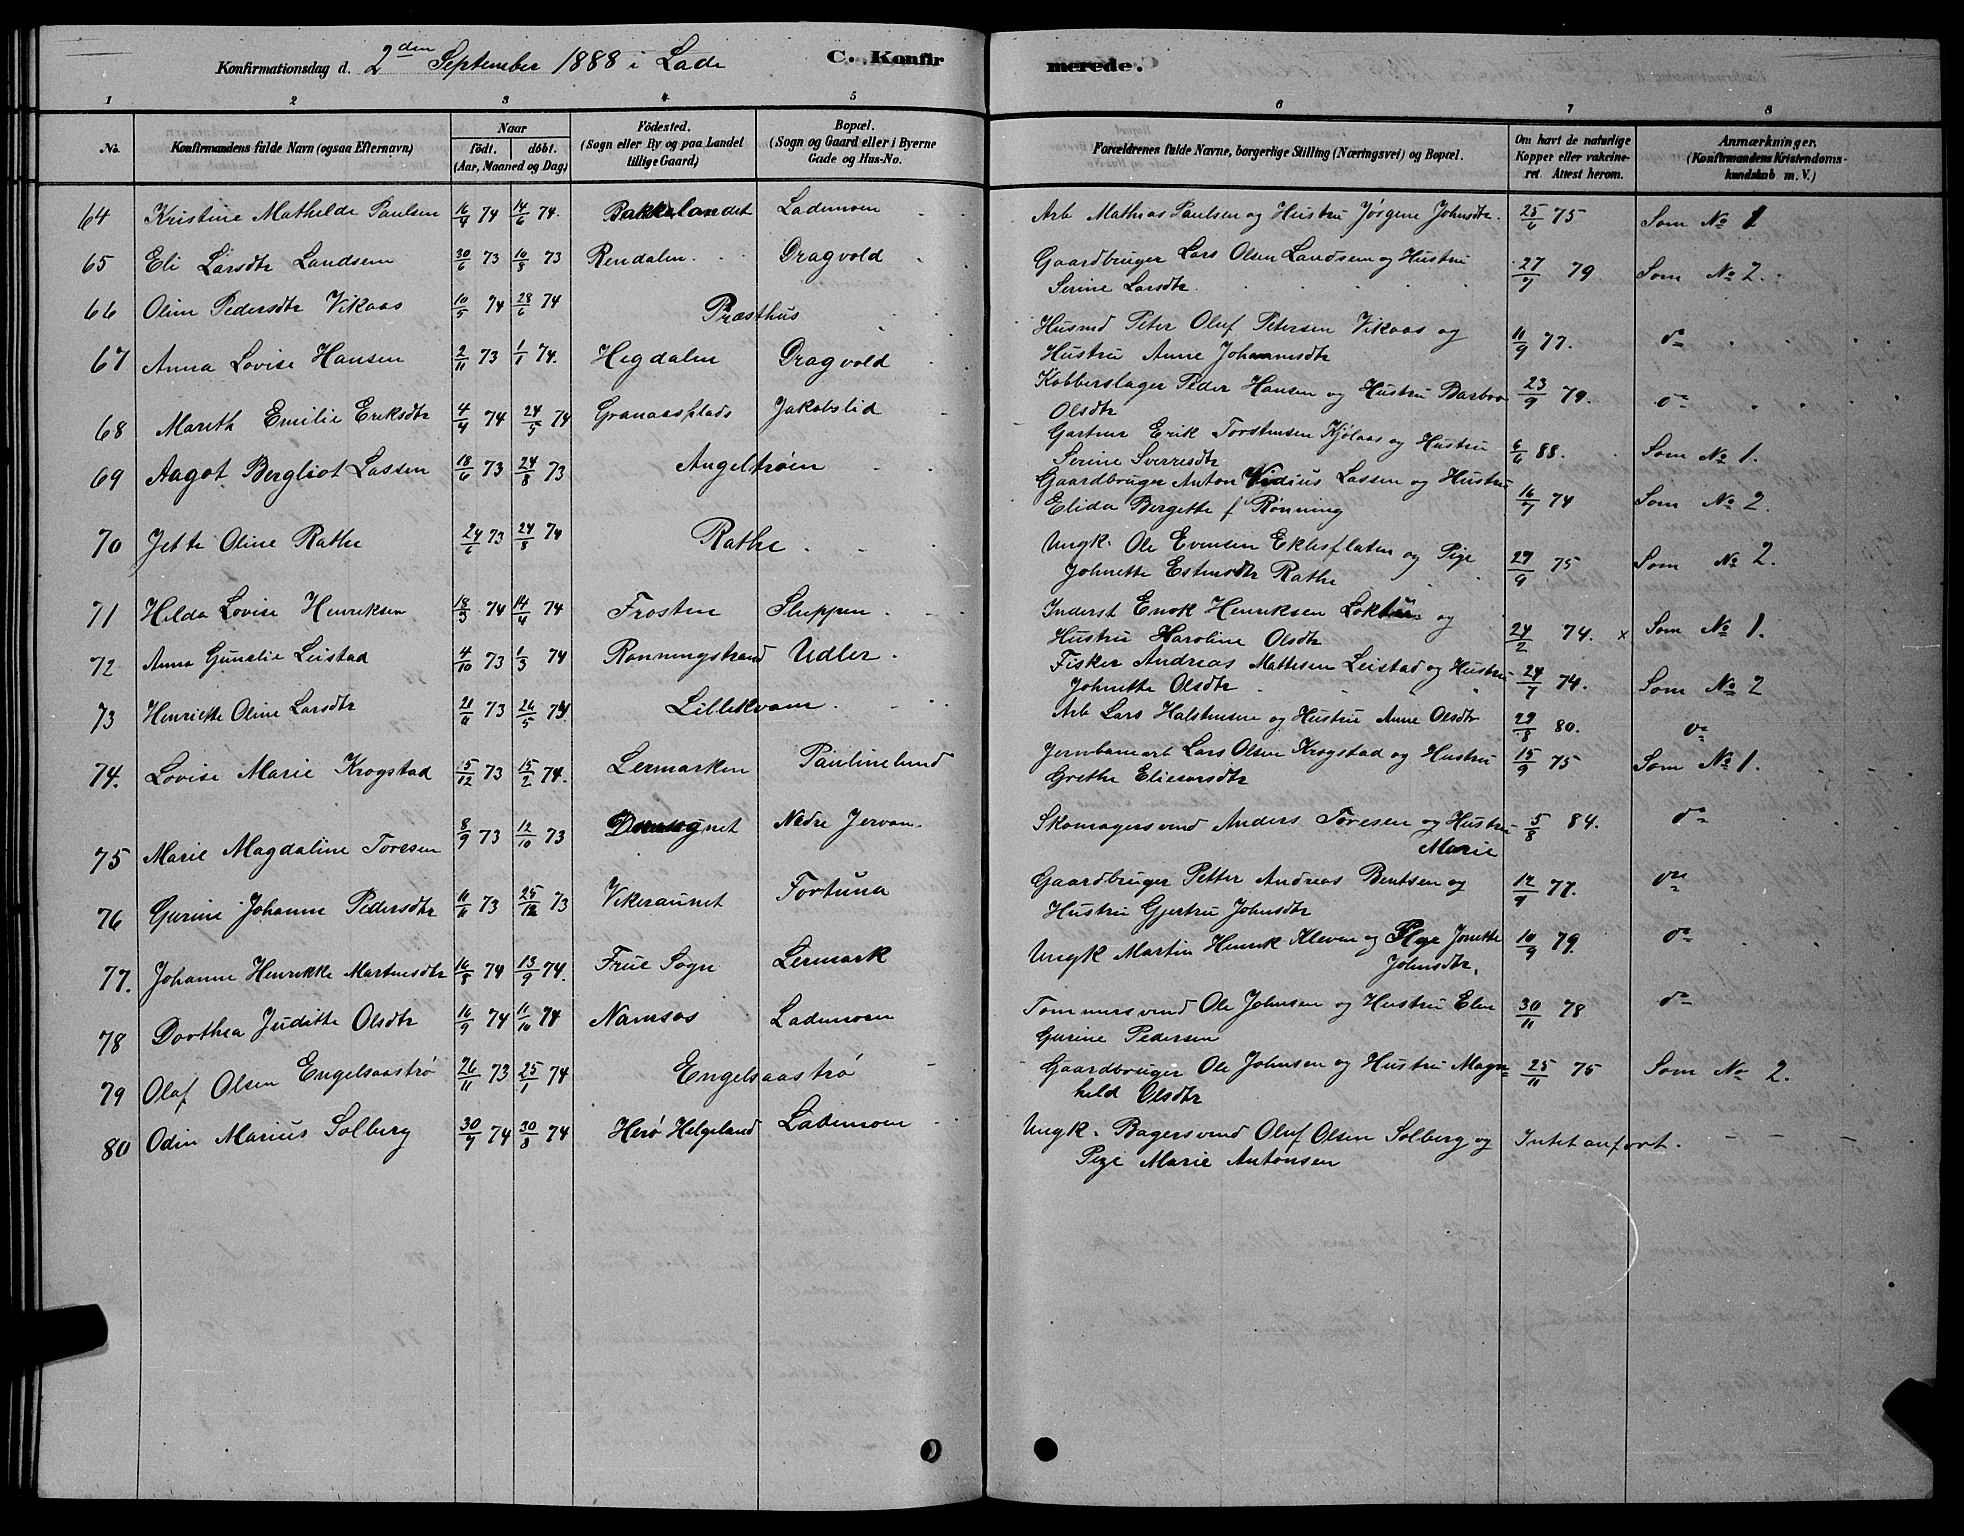 Konfirmationsdag d. 2den September 1888 i Lade C. Konfirmerede.
1 2 3 4 5 6 7 8
No. Konfirmandens fulde Navn (ogsaa Efternavn) Naar födt. döbt. (Aar, Maaned og Dag) Födested. (Sogn eller By og paa Landet tillige Gaard) Bopæl. (Sogn og Gaard eller i Byerne Gade og Hus-No. Forældrenes fulde Navne, borgerlige Stilling (Næringsvei) og Bopæl. Om havt de naturlige Kopper eller vakcineret. Attest herom. Anmærkninger. (Konfirmandens Kristendomskundskab m. V.)
64 Kristine Mathilde Paulsen 16/4 74 14/6 74. Bakkelandet Lademoen Arb Mathias Paulsen og Hustru Jørgine Johnsdtr. 25/6 75 Som No 1
65 Eli Larsdtr Landsem 30/6 73 10/8 73 Rendalen Dragvold Gaardbruger Lars Olsen Landsem og Hustru
Serine Larsdtr. 27/7 79 Som No 2.
66 Oline Pedersdtr Vikaas 10/5 74 28/6 74 Præsthus Husmd Peter Oluf Petersen Vikaas og
Hustru Anne Johannesdtr 11/9 77. do
67 Anna Lovise Hansen 2/11 73 1/1 74. Hegdalen Dragvold Kobberslager Peder Hansen og Hustru Barbro
Olsdtr 23/9 79. do
68 Marith Emilie Eriksdtr 4/4 74 24/5 74 Granaasplads Jakobslid Gartner Erik Torstensen Kjølaas og Hustru
Serine Sverresdtr 6/6 88. Som No 1.
69 Aagot Bergliot Lassen 18/6 73 24/8 73 Angeltrøen Gaardbruger Anton Vidius Lassen og Hustru
Elida Bergette f Rønning 16/7 74 Som No 2.
70 Jette Oline Rathe 24/6 73 24/8 74 Rathe Ungk. Ole Evensen Eklesflaten og Pige
Johnette Estensdtr Rathe 29/9 75 Som No 2.
71 Helda Lovise Henriksen 18/3 74 14/4 74 Frosten Sluppen Inderst Enok Henriksen Løktu og
Hustru Haroline Olsdtr 24/2 74. x Som No 1.
72 Anna Gunelie Leistad 4/10 73 1/3 74 Rønningstrand Udler. Fisker Andreas Mathisen Leistad og Hustru
Johnette Olsdtr 24/7 74. Som No 2
73 Henriette Oline Larsdtr 21/11 73 26/5 74 Lillekvam Arb Lars Halstensen og Hustru Anne Olsdtr 29/8 80. do
74. Lovise Marie Krogstad 15/12 73 15/2 74. Lermarken Paulinelund Jernbanearb Lars Olsen Krogstad og Hustru
Grethe Eliesersdtr 15/9 75 Som No 1.
75 Marie Magdaline Toresen 8/9 73 12/10 73 Domsognet Nedre Jervan. Skomagersvend Anders Toresen og Hustru
Marie 5/8 84. do
76 Gurine Johanne Pedersdtr 11/11 73 25/12 73 Vikeraunet Fortuna Gaardbruger Petter Andreas Bentsen og
Hustru Gjertru Johnsdtr 12/9 77. do
77. Johanne Henrikke Martinsdtr 16/8 74 13/9 74. Frue Sogn Lermark Ungk Martin Henrik Kleven og Pige Jonette
Johnsdtr. 10/9 79. do
78 Dorthea Juditte Olsdtr 16/9 74 11/10 74 Namsos Lademoen Tømmersvend Ole Johnsen og Hustru Elen
Gurine Pedersen 30/11 78 do
79 Olaf Olsen Engelsaastrø 26/11 73 25/1 74 Engelsaastrø Gaardbruger Ole Johnsen og Hustru Magnhild Olsdtr 25/11 75 Som No 2.
80 Odin Marius Solberg 30/7 74 30/8 74 Herø Helgeland Lademoen Ungk. Bagersvend Oluf Olsen Solberg og
Pige Marie Antonsen Intet anført.